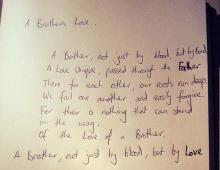 A Brothers Love..
A Brother, not just by blood, but by Bond
A Love Unique, passed through the Father
There for each other, our roots run deep,
We fail one another, and easily forgive.
For their is nothing that can stand
in the way.
Of the Love of a Brother.
A Brother, not just by blood, but by Love